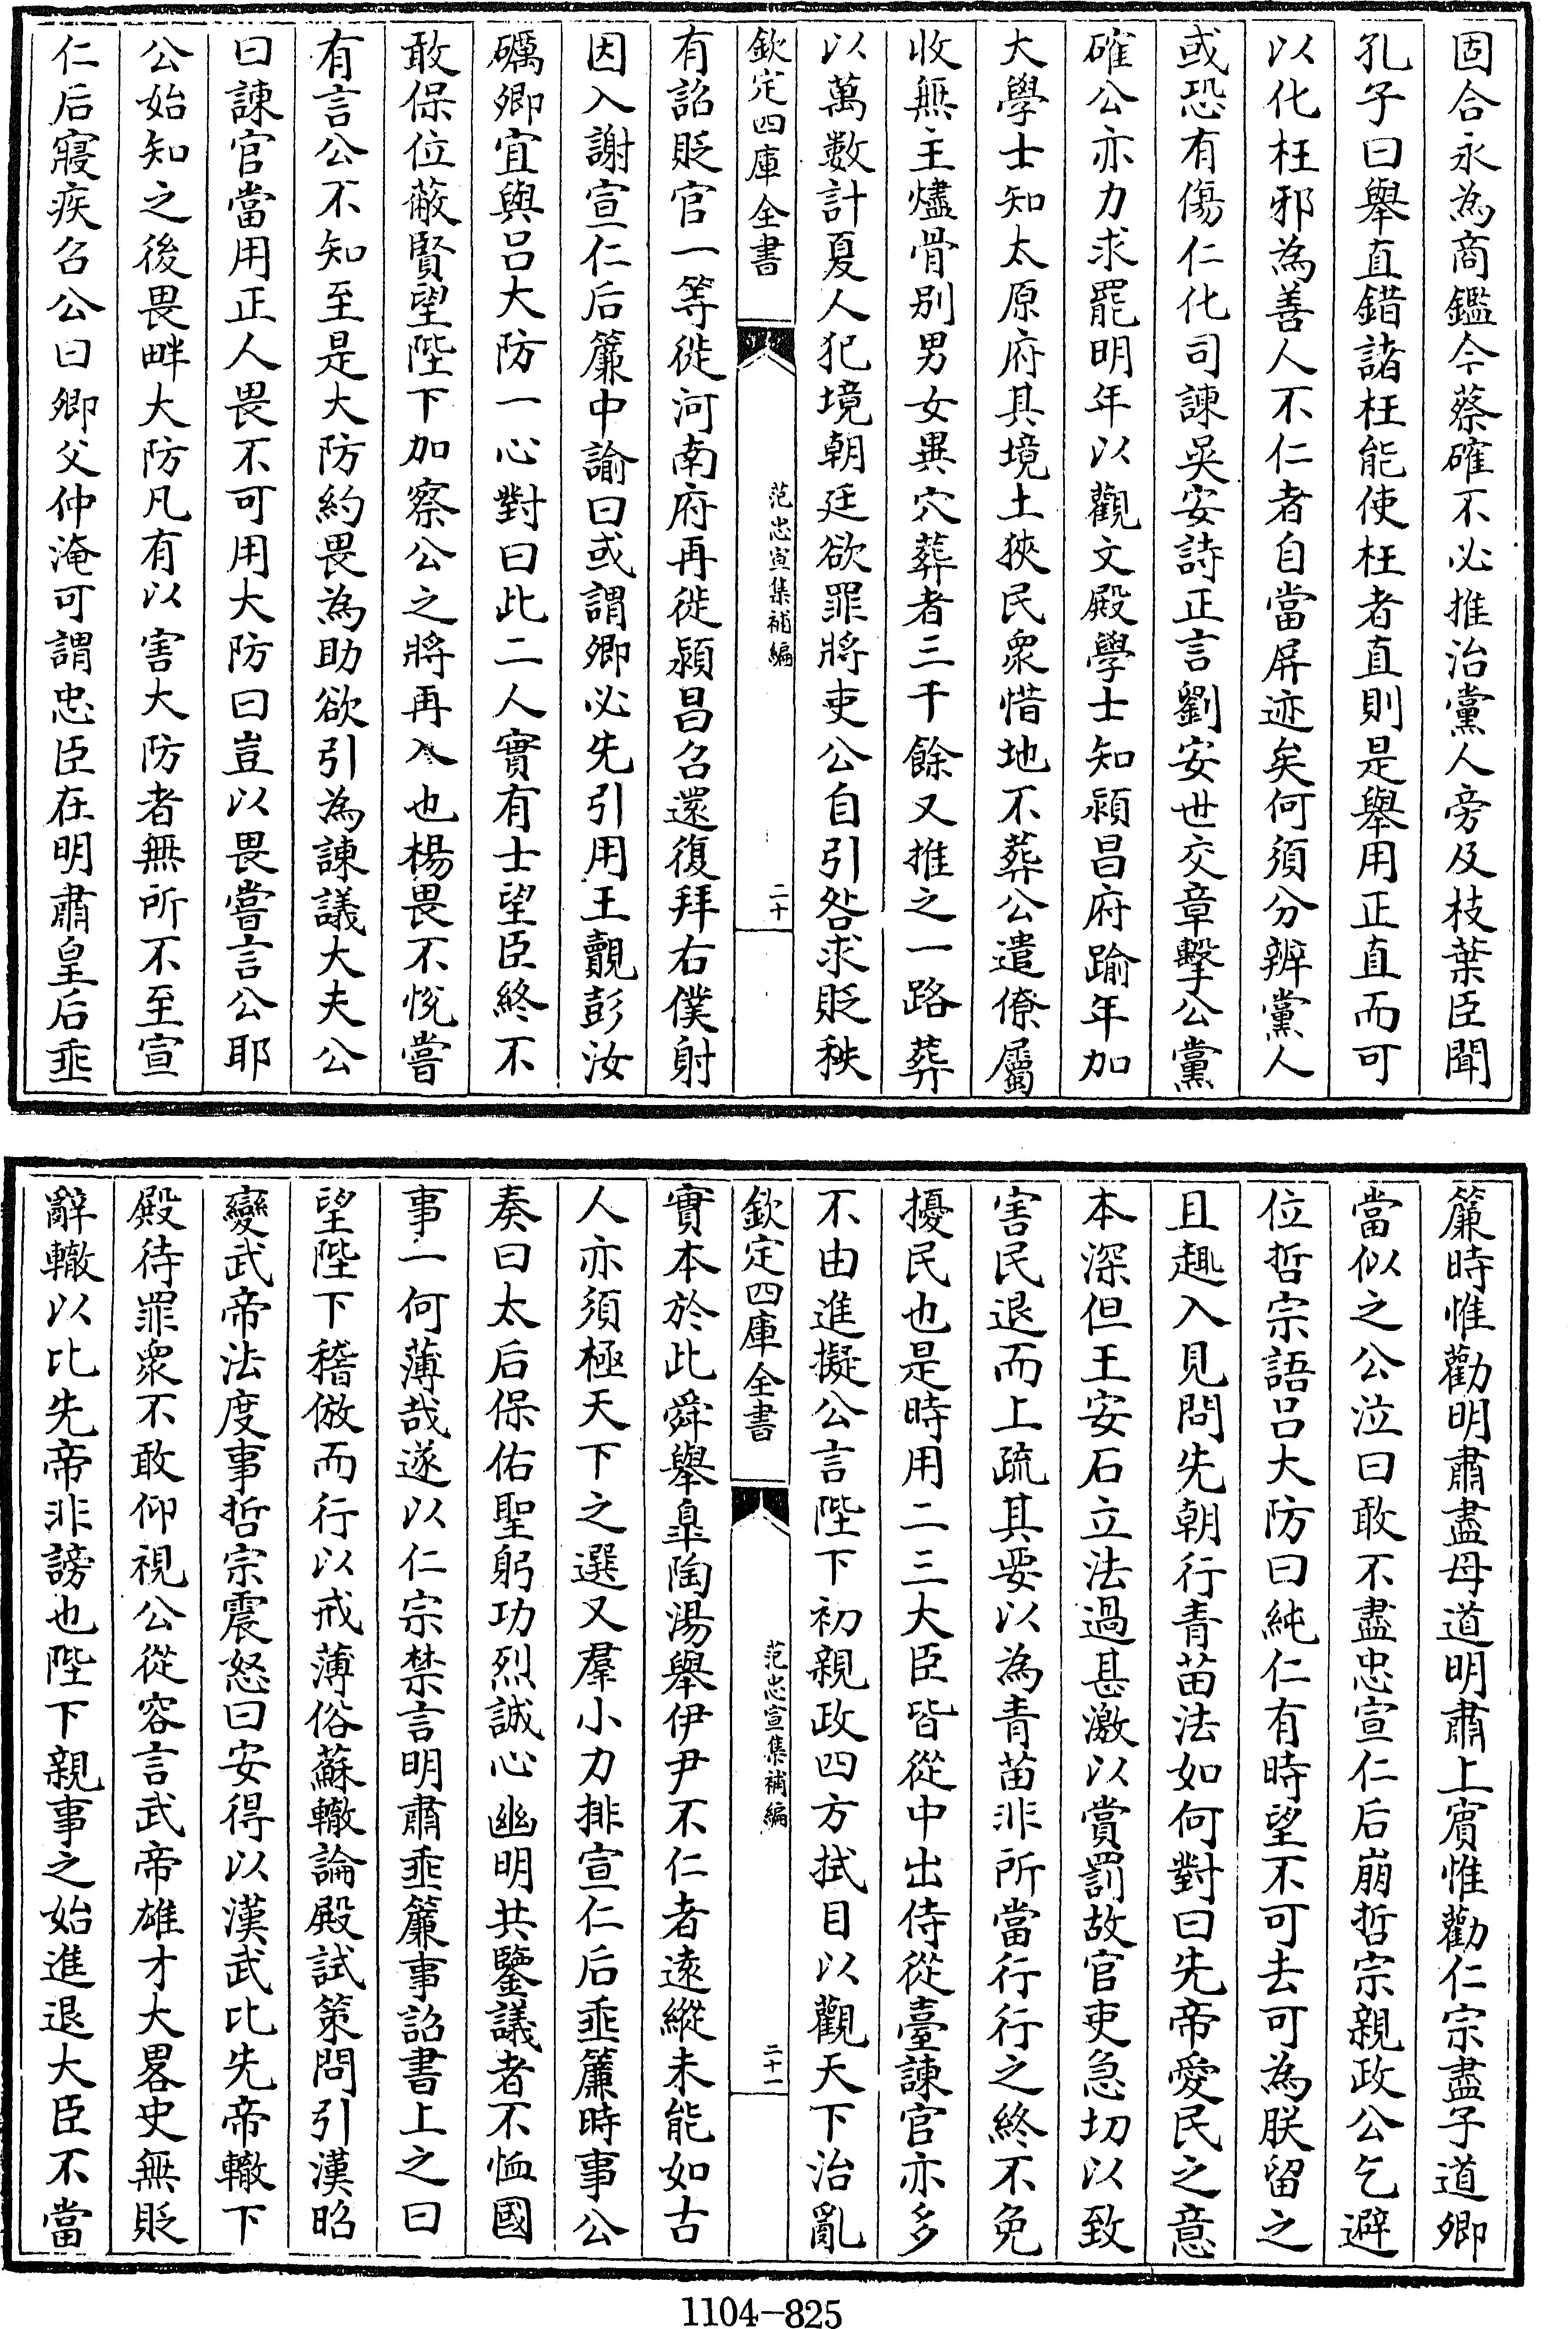 固合永為商鑑今蔡確不必推治黨人旁及枝葉臣聞
孔子曰舉直錯諸枉能使枉者直則是舉用正直而可
以化枉邪為善人不仁者自當屏迹矣何須分辨黨人
或恐有傷仁化司諫吳安詩正言劉安世交章擊公黨
確公亦力求罷明年以觀文殿學士知潁昌府踰年加
大學士知太原府其境土狹民衆惜地不葬公遣僚屬
收無主燼骨别男女異穴葬者三千餘又推之一路葬
以萬數計夏人犯境朝廷欲罪將吏公自引咎求貶秩
欽定四庫全書
范忠宣集補編
二十
有詔貶官一等徙河南府再徙潁昌召還復拜右僕射
因入謝宣仁后簾中諭曰或謂卿必先引用王覿彭汝
礪卿宜與呂大防一心對曰此二人實有士望臣終不
敢保位蔽賢望陛下加察公之將再入也楊畏不悅嘗
有言公不知至是大防約畏為助欲引為諫議大夫公
曰諫官當用正人畏不可用大防曰豈以畏嘗言公耶
公始知之後畏畔大防凡有以害大防者無所不至宣
仁后寢疾召公曰卿父仲淹可謂忠臣在明肅皇后垂
簾時惟勸明肅盡母道明肅上賓惟勸仁宗盡子道卿
當似之公泣曰敢不盡忠宣仁后崩哲宗親政公乞避
位哲宗語呂大防曰純仁有時望不可去可為朕留之
且趣入見問先朝行青苗法如何對曰先帝愛民之意
本深但王安石立法過甚激以賞罰故官吏急切以致
害民退而上疏其要以為青苗非所當行行之終不免
擾民也是時用二三大臣皆從中出侍從臺諫官亦多
不由進擬公言陛下初親政四方拭目以觀天下治亂
欽定四庫全書
范忠宣集補編
二十一
實本於此舜舉臯陶湯舉伊尹不仁者遠縱未能如古
人亦須極天下之選又羣小力排宣仁后垂簾時事公
奏曰太后保佑聖躬功烈誠心幽明共鑒議者不恤國
事一何薄哉遂以仁宗禁言明肅垂簾事詔書上之曰
望陛下稽倣而行以戒薄俗蘇轍論殿試策問引漢昭
變武帝法度事哲宗震怒曰安得以漢武比先帝轍下
殿待罪衆不敢仰視公從容言武帝雄才大畧史無貶
辭轍以比先帝非謗也陛下親事之始進退大臣不當
1104-825